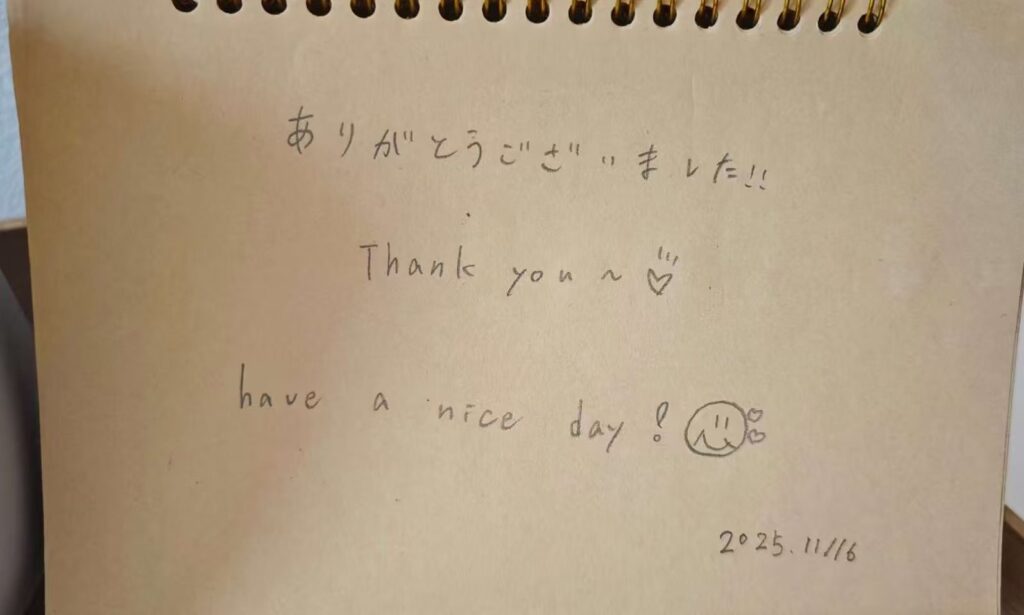 ありがとうございました!!
Thank you ~ ♡
have a nice day!
2025.11/16